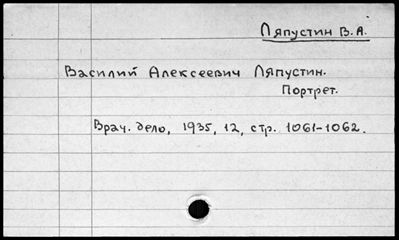 Ляпустин В.А.
Василий Алексеевич Ляпустин.
Портрет.
Врач. дело, 1935, 12, стр. 1061-1062.